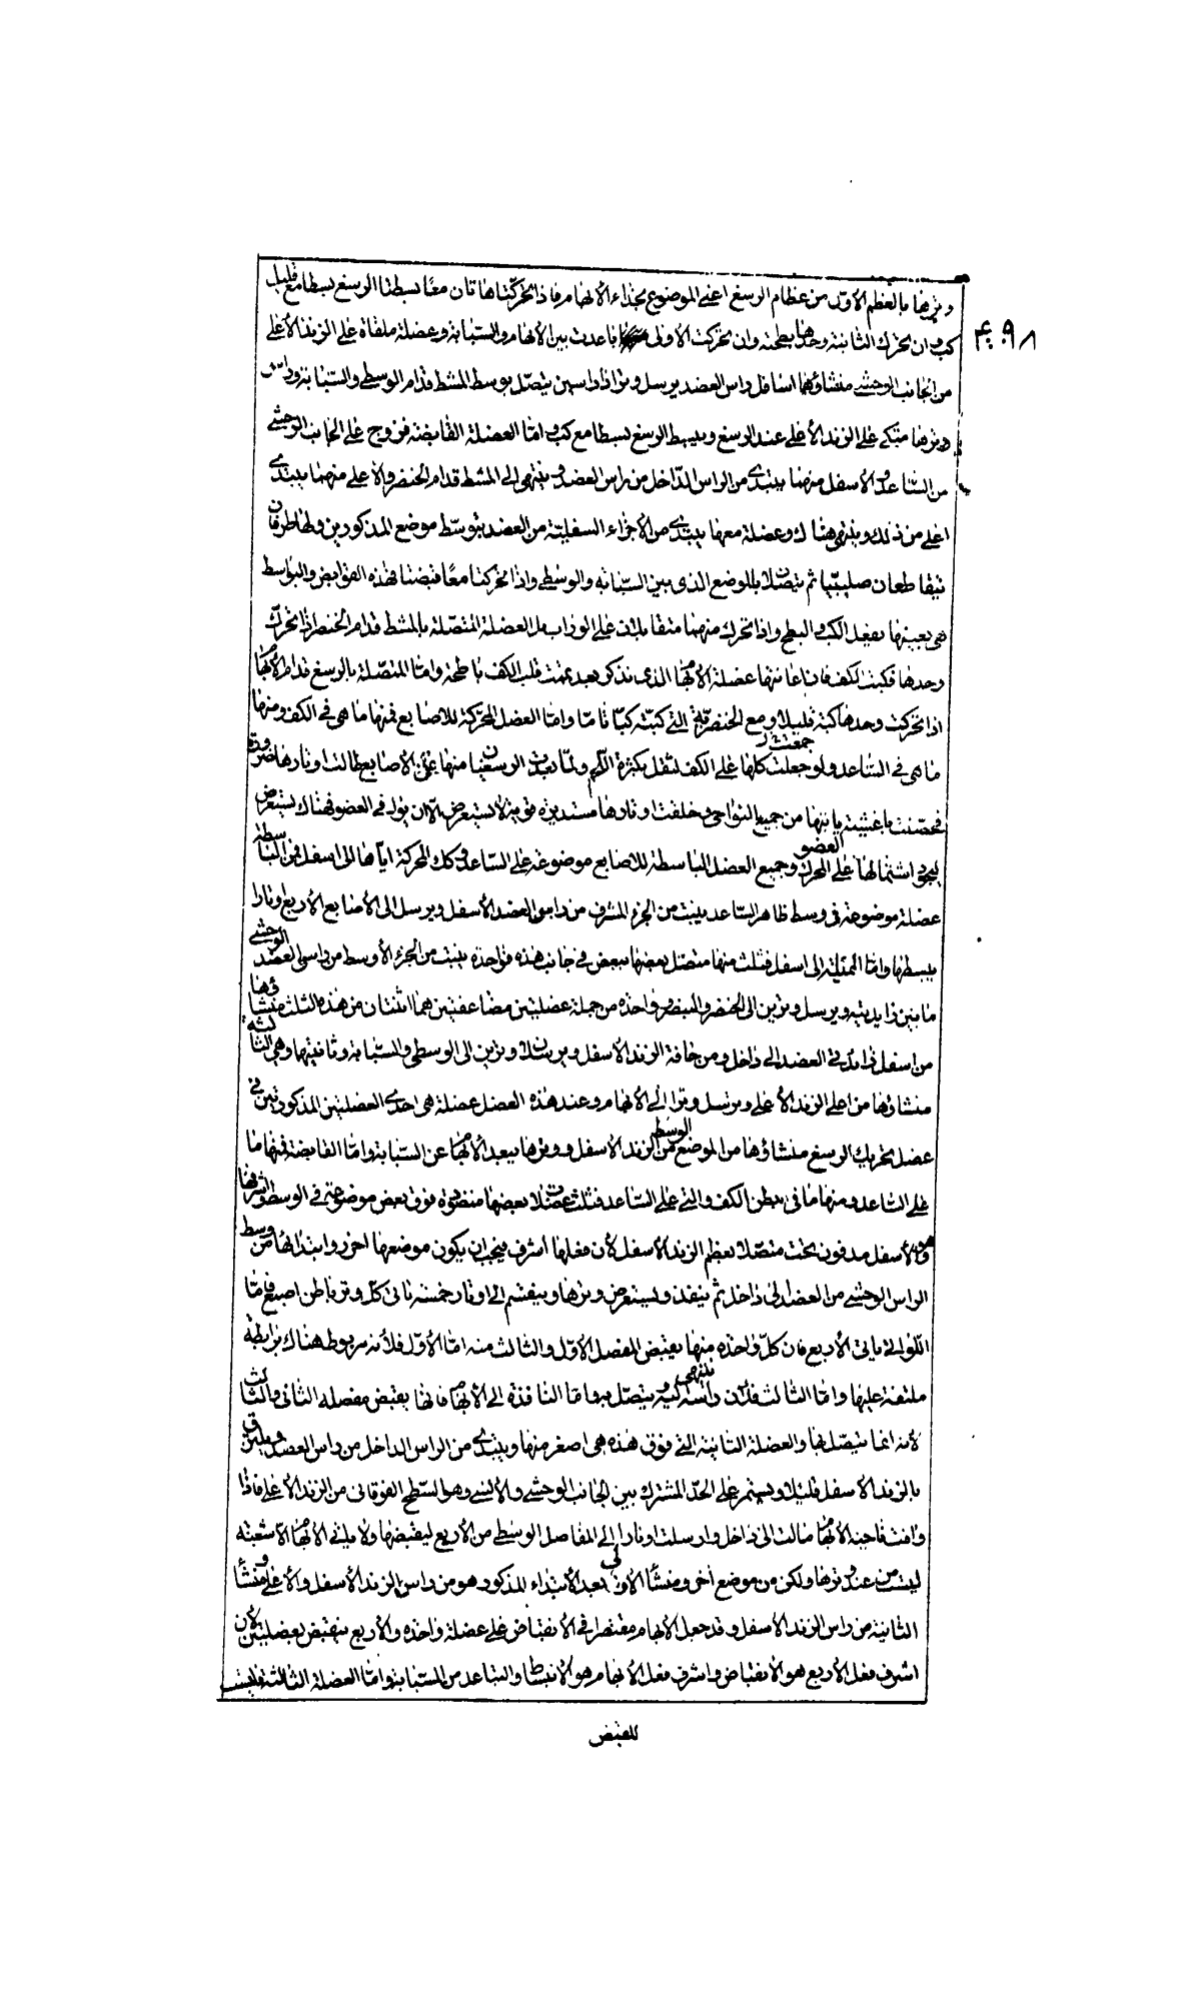 وترها بالعظم الأوّل من عظام الرسغ اعنى الموضوع بحذاء الأبهام فاذا تحركتا هاتان معًا بسطتا الرسغ بسطا مع قليل
كب وان تحرك الثانية وحدها بطحته وان تحركت الاولى باعدت بين الأبهام والسّبّابة وعضلة ملقاة على الزند الأعلى
من الجانب الوحشى منشاؤها اسافل راس العضد يرسل وترا ذا راسين يتصل بوسط المشط قدام الوسطى والسبّابة وراس
وترها متكى على الزند الأعلى عند الرسغ ويبسط الرسغ بسطا مع كب وامّا العضلة القابضة فزوج على الجانب الوحشى
من السّاعد والأسفل منهما يبتدى من الراس الدّاخل من راس العضد وينتهى الى المشط قدام الخنصر والأعلى منهما يبتدى
اعلى من ذلك وينتهى هناك وعضلة معها يبتدى من الأجزاء السفلية من العضد يتوسّط موضع المذكورين ولها طرفان
يتقاطعان صليبيّا ثم يتصلان بالموضع الذى بين السبّابة والوسطى واذا تحركتا معًا قبضتا فهذه القوابض والبواسط
هى بعينها يفعل الكب والبطح واذا تحرك منهما متقابلتان على الوراب بل العضلة المتصلة بالمشط قدام الخنصر اذا تحرّك
وحدها قلبت الكف فان اعانتها عضلة الأبهام الذى نذكر بعد تممت قلب الكف باطحة وامّا المتصلة بالرسغ قدام الأبهام
اذا تحركت وحدها كبته قليلا ومع الخنصرية التى كبته كبّا تامّا وامّا العضل المحرّكة للاصابع فمنها ما هى فى الكف ومنها
ما هى فى السّاعد ولو جعلت جمعت كلها على الكف لثقل بكثرة اللحم ولمّا بعدت الرسغيات منها عن الأصابع طالت اوتارها ضرورة
فحصّنت باغشية ياتيها من جميع النواحى وخلقت اوتارها مستديرة قوية لا يستعرض الّا ان يوافى العضو فهناك يستعرض
ليجود اشتمالها على العضو المحرك وجميع العضل الباسطة للاصابع موضوعة على السّاعد وكذلك المحركة ايّاها الى اسفل فمن الباسطة
عضلة موضوعة فى وسط ظاهر السّاعد ينبت من الجزء المشرف من راس العضد الأسفل ويرسل الى الأصابع الأربع اوتارا
يبسطها وامّا المميلة الى اسفل فثلث منها متصل بعضها ببعض فى جانب هذه فواحدة ينبت من الجزء الأوسط من راسى العضد الوحشى
ما بين زايديتيه ويرسل وترين الى الخنصر والبنصر وواحدة من جملة عضلتين مضاعفتين هما اثنتان من هذه الثلث منشاؤها
من اسفل زايدتى العضد الى داخل ومن حافة الزند الأسفل ويرسلان وترين الى الوسطى والسّبّابة وثانيتها وهى الثالثة
منشاؤها من اعلى الزند الأعلى ويرسل وترا الى الأبهام وعند هذه العضل عضلة هى احدى العضلتين المذكورتين فى
عضل تحريك الرسغ منشاؤها من الموضع الوسط من الزند الأسفل ووترها يبعد الأبهام عن السّبّابة وامّا القابضة فمنها ما
على السّاعد ومنها ما فى بطن الكف والتى على السّاعد فثلث عضلات بعضها منضودة فوق بعض موضوعة فى الوسط واشرفها
وهو الأسفل مدفون تحت متصلا بعظم الزند الأسفل لأن فعلها اشرف فيجب ان يكون موضعها احرز وابتداؤها من وسط
الراس الوحشى من العضد الى داخل ثم ينفذ ويستعرض وترها وينقسم الى اوتار خمسة ياتى كلّ وتر باطن اصبع فامّا
اللّواتى ياتى الأربع فان كلّ واحدة منها يقبض المفصل الأوّل والثالث منه امّا الأوّل فلأنه مربوط هناك برابطة
ملتفة عليها وامّا الثالث فلان راسه ينتهى اليه ويتصل به وامّا النافذة الى الأبهام فانها يقبض مفصله الثانى والثالث
لأنه انما يتصل بها والعضلة الثانية التى فوق هذه هى اصغر منها ويبتدى من الراس الداخل من راس العضد ويلتزق
بالزند الأسفل قليلا ويستمر على الحدّ المشترك بين الجانب الوحشى والأنسى وهو السّطح الفوقانى من الزند الأعلى فاذا
وافت ناحية الأبهام مالت الى داخل وارسلت اوتارا الى المفاصل الوسطى من الأربع ليقبضها ولا ياتى الأبهام الّا شعبة
ليست من عند وترها ولكن من موضع اخر ومنشأ الاولى بعد الأبتداء المذكور هو من راس الزند الأسفل والأعلى ومنشأ
الثانية من راس الزند الأسفل وقد جعل الأبهام مقتصرا فى الأنقباض على عضلة واحدة والأربع ينقبض بعضلتين لأن
اشرف فعل الأربع هو الأنقباض واشرف فعل الأبهام هو الأنبساط والتباعد من السّبّابة وامّا العضلة الثالثة فليست
للقبض